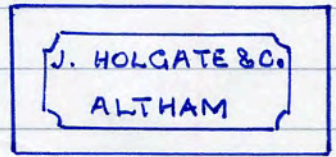 J. HOLGATE & C.
ALTHAM